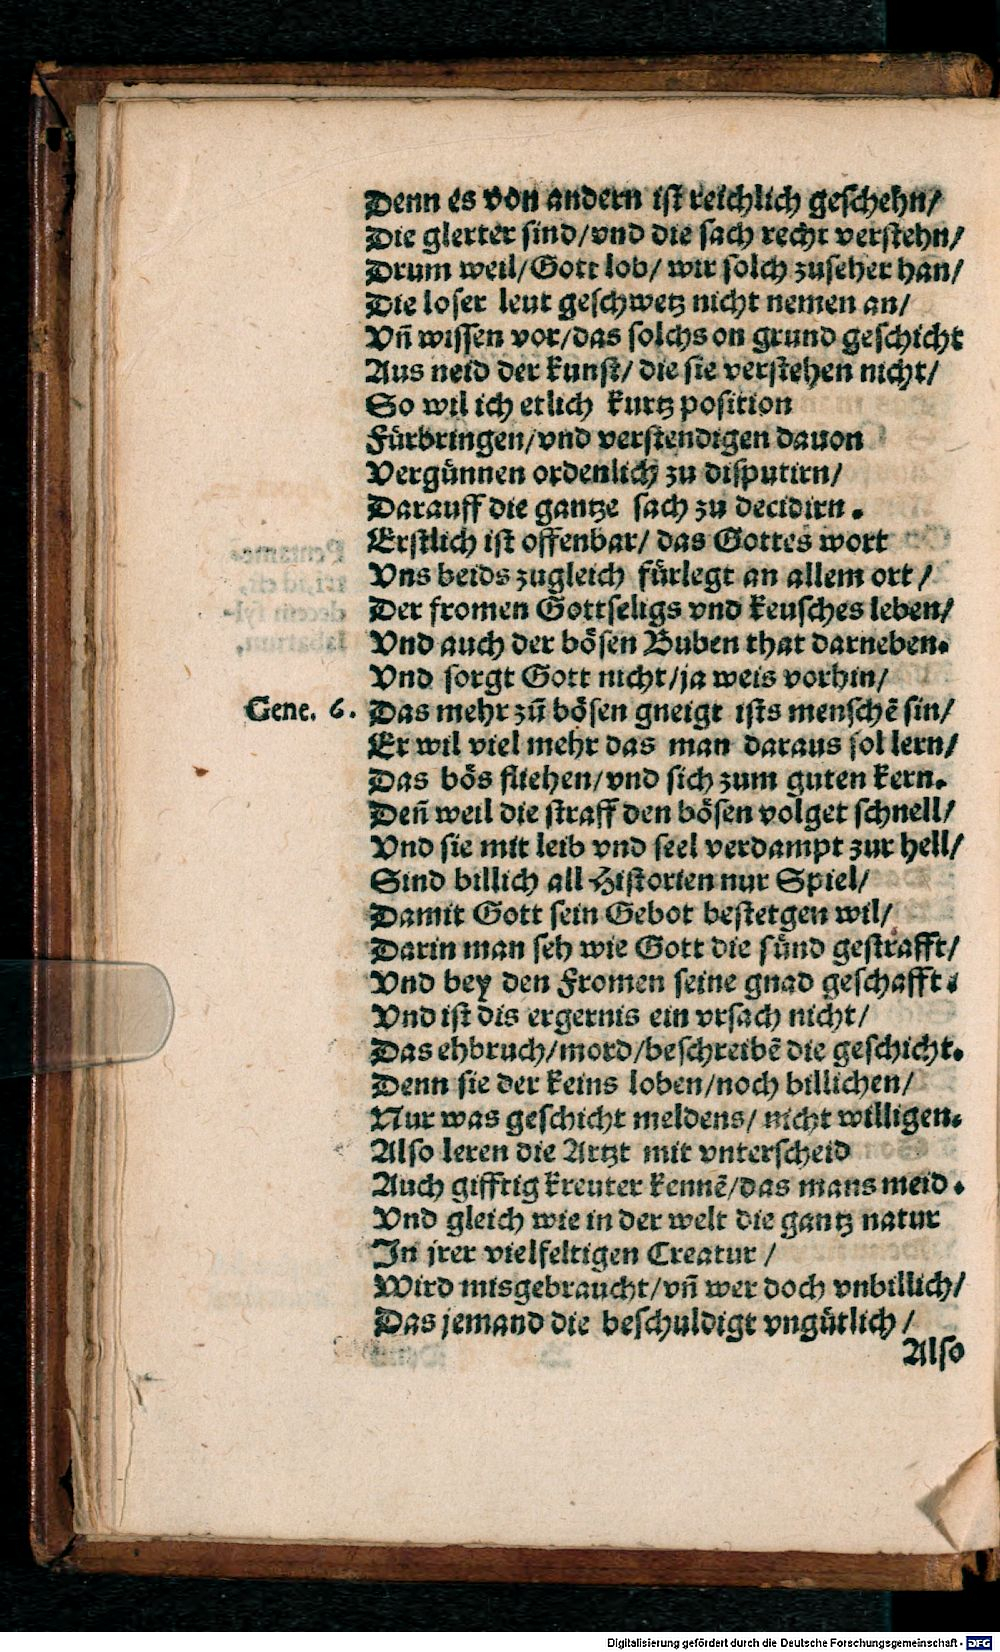 Denn es von andern ist reichlich geschehn/
Die glerter sind/vnd die sach recht verstehn/
Drum weil/Gott lob/ wir solch zuseher han/
Die loser leut geschwetz nicht nemen an/
Vn̄ wissen vor/das solchs on grund geschicht
Aus neid der kunst/ die sie verstehen nicht/
So wil ich etlich kurtz position
Fürbringen/vnd verstendigen dauon
Vergünnen ordenlich zu disputirn/
Darauff die gantze sach zu decidirn.
Erstlich ist offenbar/ das Gottes wort
Vns beids zugleich fürlegt an allem ort/
Der fromen Gottseligs vnd keusches leben/
Vnd auch der bösen Buben that darneben.
Vnd sorgt Gott nicht/ja weis vorhin/
Gene. 6. Das mehr zū bösen gneigt ists menschē sin/
Er wil viel mehr das man daraus sol lern/
Das bös fliehen/vnd sich zum guten kern.
Den̄ weil die straff den bösen volget schnell/
Vnd sie mit leib vnd seel verdampt zur hell/
Sind billich all Historien nur Spiel/
Damit Gott sein Gebot bestetgen wil/
Darin man seh wie Gott die sünd gestrafft/
Vnd bey den Fromen seine gnad geschafft.
Vnd ist dis ergernis ein vrsach nicht/
Das ehbruch/mord/beschreibē die geschicht.
Denn sie der keins loben/noch billichen/
Nur was geschicht meldens/ nicht willigen.
Also leren die Artzt mit vnterscheid
Auch gifftig kreuter kennē/das mans meid.
Vnd gleich wie in der welt die gantz natur
In jrer vielfeltigen Creatur/
Wird misgebraucht/vn̄ wer doch vnbillich/
Das jemand die beschuldigt vngütlich/
Also
Digitalisierung gefördert durch die Deutsche Forschungsgemeinschaft - DFG